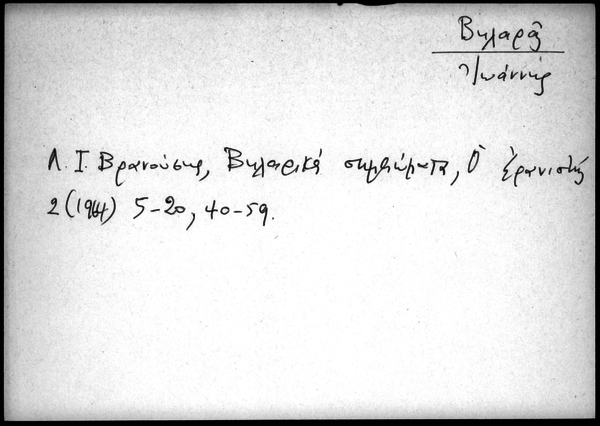 Βηλαρᾶ
Ἰωάννης
Λ. Ι. Βρανούσης, Βηλαρικά σημειώματα, Ὁ Ἐρανιστής
2 (1964) 5-20, 40-59.